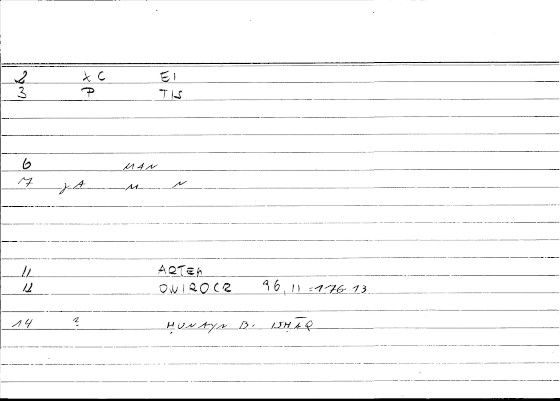 2 XC EI
3 P TIS
6 MAN
7 γA M N
11 ARTEM
12 ONIROCR 96,11 = 176 13
14 ? ḤUNAYN B. ISḤĀQ